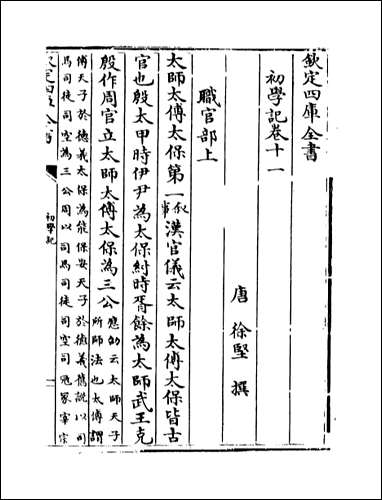 欽定四庫全書
初學記卷十一
唐 徐堅 撰
職官部上
太師太傅太保第一
敘事
漢官儀云太師太傅太保皆古
官也殷太甲時伊尹為太保紂時胥餘為太師武王克
殷作周官立太師太傅太保為三公
應劭云太師天子
所師法也太傅謂
傅天子於德義太保為能保安天子於德義舊説以司
馬司徒司空為三公周以司馬司徒司空司冦冢宰宗
初學記
一